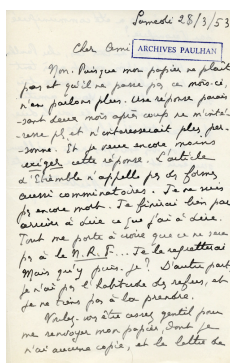 Samedi 28/3/53
Cher Ami
ARCHIVES PAULHAN
Non. Puisque mon papier ne plaît
pas et qu'il ne passe pas ce mois-ci,
n'en parlons plus. Une réponse parais
-sant deux mois après coup ne m'inté-
resse pl, et n'intéresserait plus per-
sonne. Et je veux encore moins
exiger cette réponse. L'article
d'Etiemble n'appelle pas des formes
aussi comminatoires. Je ne suis
pas encore mort. Je finirai bien par
arriver à dire ce que j'ai à dire.
Tout me porte à croire que ce ne sera
pas à la N.R.F... Je le regretterai
Mais qu'y puis-je? D'autre part
je n'ai pas l'habitude des refus, et
je ne tiens pas à la prendre.
Voulez-vous être assez gentil pour
me renvoyer mon papier, dont je
n'ai aucune copie, et la lettre de